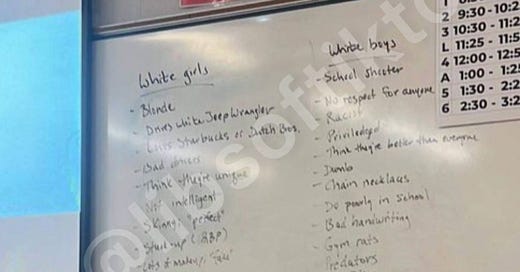 White girls
- Blonde
- Drives white Jeep Wrangler
- Loves Starbucks or Dutch Bros.
- Bad drivers
- Think they're unique
- Not intelligent
- Skinny, "perfect"
- Stuck up (BBP)
- Lots of makeup "fake"
White boys
- School shooter
- No respect for anyone
- Racist
- Priviledged
- Think they're better than everyone
- Dumb
- Chain necklaces
- Do poorly in School
- Bad handwriting
- Gym rats
- Predators
2 9:30 - 10:2
3 10:30 - 11:2
L 11:25 - 11:5
4 12:00 - 12:5
A 1:00 - 1:2
5 1:30 - 2:2
6 2:30 - 3:2
@libsoftiktok